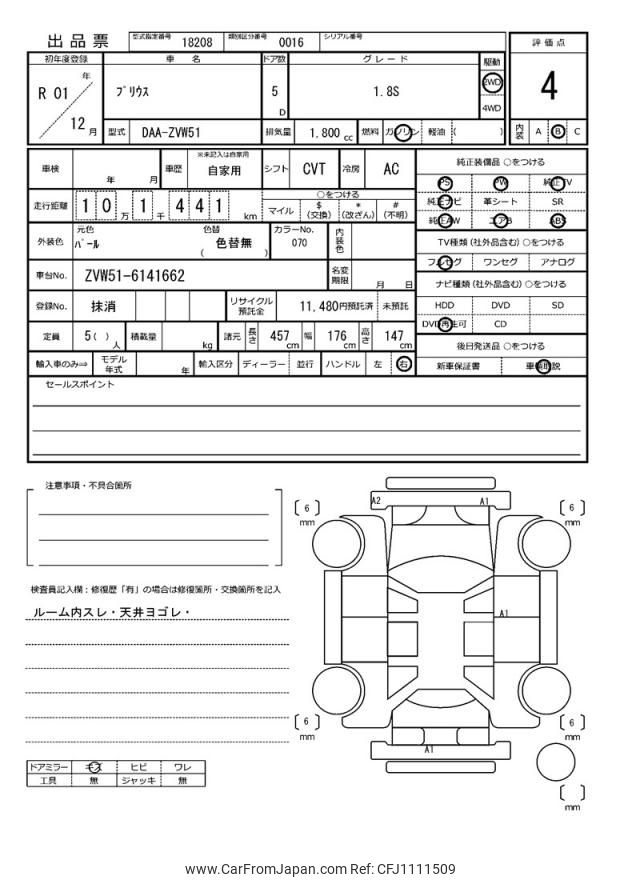 出品票 型式指定番号 18208 類別区分番号 0016 シリアル番号
初年度登録 車 名 ドア数 グレード 駆動 評価点
R 01 年 12 月 プリウス 5 D 1.8S 2WD 4WD 4
型式 DAA-ZVW51 排気量 1.800 cc 燃料 ガソリン 軽油 ( ) 内装 A B C
車検 年 月 車歴 ※未記入は自家用 自家用 シフト CVT 冷房 AC
走行距離 10 万 1 千 441 km ○をつける マイル $ (交換) * (改ざん) # (不明)
外装色 元色 パール 色替 ( 色替無 ) カラーNo. 070 内装色
車台No. ZVW51-6141662 名変期限 月 日
登録No. 抹消 リサイクル預託金 11,480円預託済 未預託
定員 5( ) 人 積載量 kg 諸元 長さ 457 cm 幅 176 cm 高さ 147 cm
輸入車のみ⇒ モデル年式 年 輸入区分 ディーラー 並行 ハンドル 左 右
純正装備品 ○をつける
PS PW 純正TV
純正ナビ 革シート SR
純正AW エアB ABS
TV種類 (社外品含む) ○をつける
フルセグ ワンセグ アナログ
ナビ種類 (社外品含む) ○をつける
HDD DVD SD
DVD再生可 CD
後日発送品 ○をつける
新車保証書 車輌取説
セールスポイント
注意事項・不具合箇所
検査員記入欄:修復歴「有」の場合は修復箇所・交換箇所を記入
ルーム内スレ・天井ヨゴレ・
ドアミラー キズ ヒビ ワレ
工具 無 ジャッキ 無
A2 A1
6 mm 6 mm
A1
6 mm 6 mm
A1
mm
www.CarFromJapan.com Ref: CFJ1111509